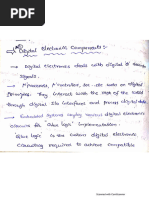 → Digital Electronic Components :-
→ Digital electronics deals with digital or
signals.
→ Processors, Controllers, for etc work on digital
They interact with the rest of the world
through digital I/o interfaces and process digital data
→ Embedded systems employ various digital electronic
circuits for 'Glue logic' implementation.
'Glue logic' is the custom digital electronic
circuitry required to achieve compatible